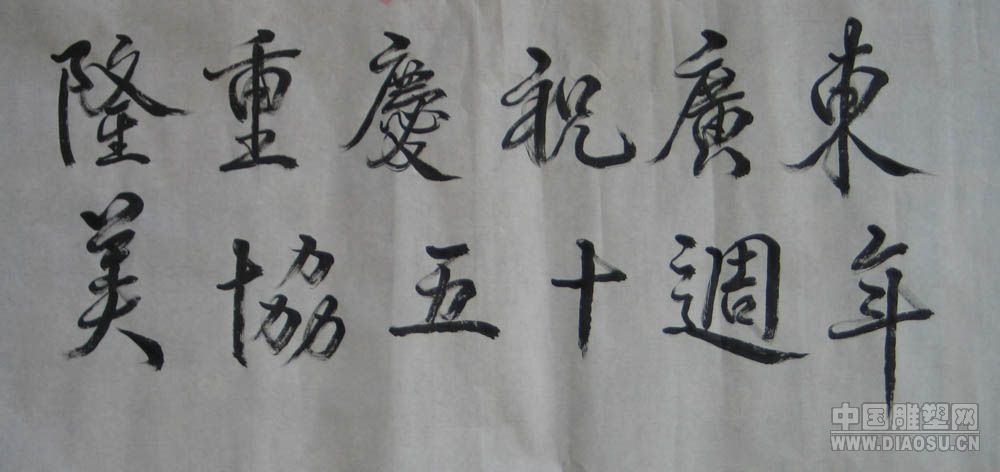 隆重慶祝廣東
美協五十週年
中国雕塑网
WWW.DIAOSU.CN